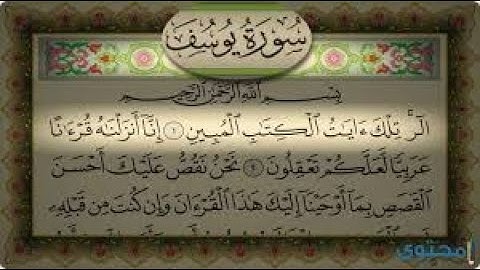 سُورَةُ يُوسُفَ
بِسْمِ اللَّهِ الرَّحْمَٰنِ الرَّحِيمِ
الٓر ۚ تِلْكَ ءَايَٰتُ ٱلْكِتَٰبِ ٱلْمُبِينِ ١ إِنَّآ أَنزَلْنَٰهُ قُرْءَٰنًا
عَرَبِيًّا لَّعَلَّكُمْ تَعْقِلُونَ ٢ نَحْنُ نَقُصُّ عَلَيْكَ أَحْسَنَ
ٱلْقَصَصِ بِمَآ أَوْحَيْنَآ إِلَيْكَ هَٰذَا ٱلْقُرْءَانَ وَإِن كُنتَ مِن قَبْلِهِۦ
محتوى